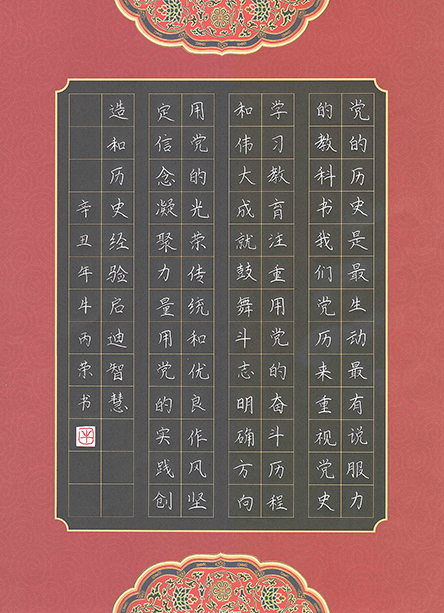 党的历史是最生动最有说服力
的教科书我们党历来重视党史
学习教育注重用党的奋斗历程
和伟大成就鼓舞斗志明确方向
用党的光荣传统和优良作风坚
定信念凝聚力量用党的实践创
造和历史经验启迪智慧
辛丑年牛丙荣书